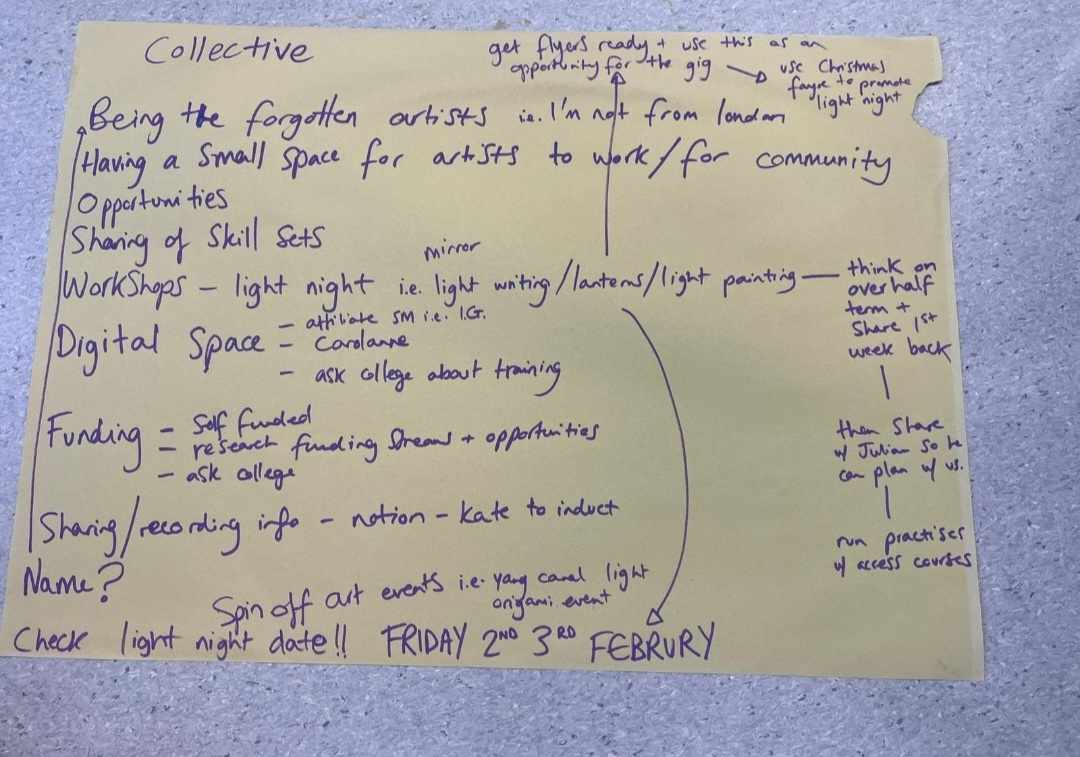 Collective
get flyers ready + use this as an
opportunity for the gig
use Christmas
fayre to promote
light night
Being the forgotten artists i.e. I'm not from london
Having a Small Space for artists to work/for community
Opportunities
Sharing of Skill Sets
mirror
WorkShops - light night i.e. light writing/lanterns/light painting
think on
over half
term +
Share 1st
week back
then Share
w/ Julian so he
can plan w/ us.
run practises
w/ access courses
Digital Space - affiliate SM i.e. I.G.
- Carolanne
- ask college about training
Funding - Self funded
- research funding Streams + opportunities
- ask college
Sharing/recording info - notion - Kate to induct
Name?
Spin off art events i.e. canal light
origami event
Check light night date!! FRIDAY 2ND 3RD FEBRURY